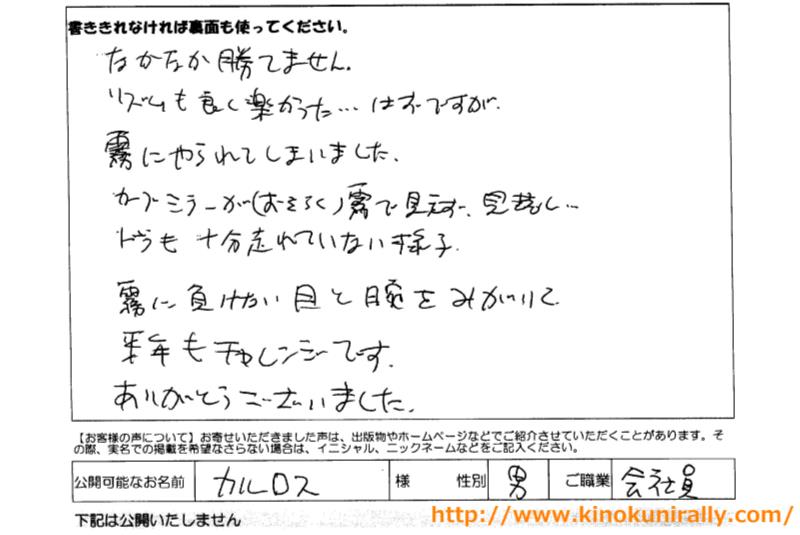 書ききれなければ裏面も使ってください。
なかなか勝てません.
リズムも良く楽かった…はずですが.
霧にやられてしまいました.
カーブミラーが(おそらく)霧で見えず、見落し…
ドラも十分走れていない様子.
霧に負けない目と腕をみがいて
来年もチャレンジです.
ありがとうございました.
【お客様の声について】お寄せいただきました声は、出版物やホームページなどでご紹介させていただくことがあります。そ
の際、実名での掲載を希望なさらない場合は、イニシャル、ニックネームなどをご記入ください。
公開可能なお名前 カルロス 様 性別 男 ご職業 会社員
下記は公開いたしません
http://www.kinokunirally.com/